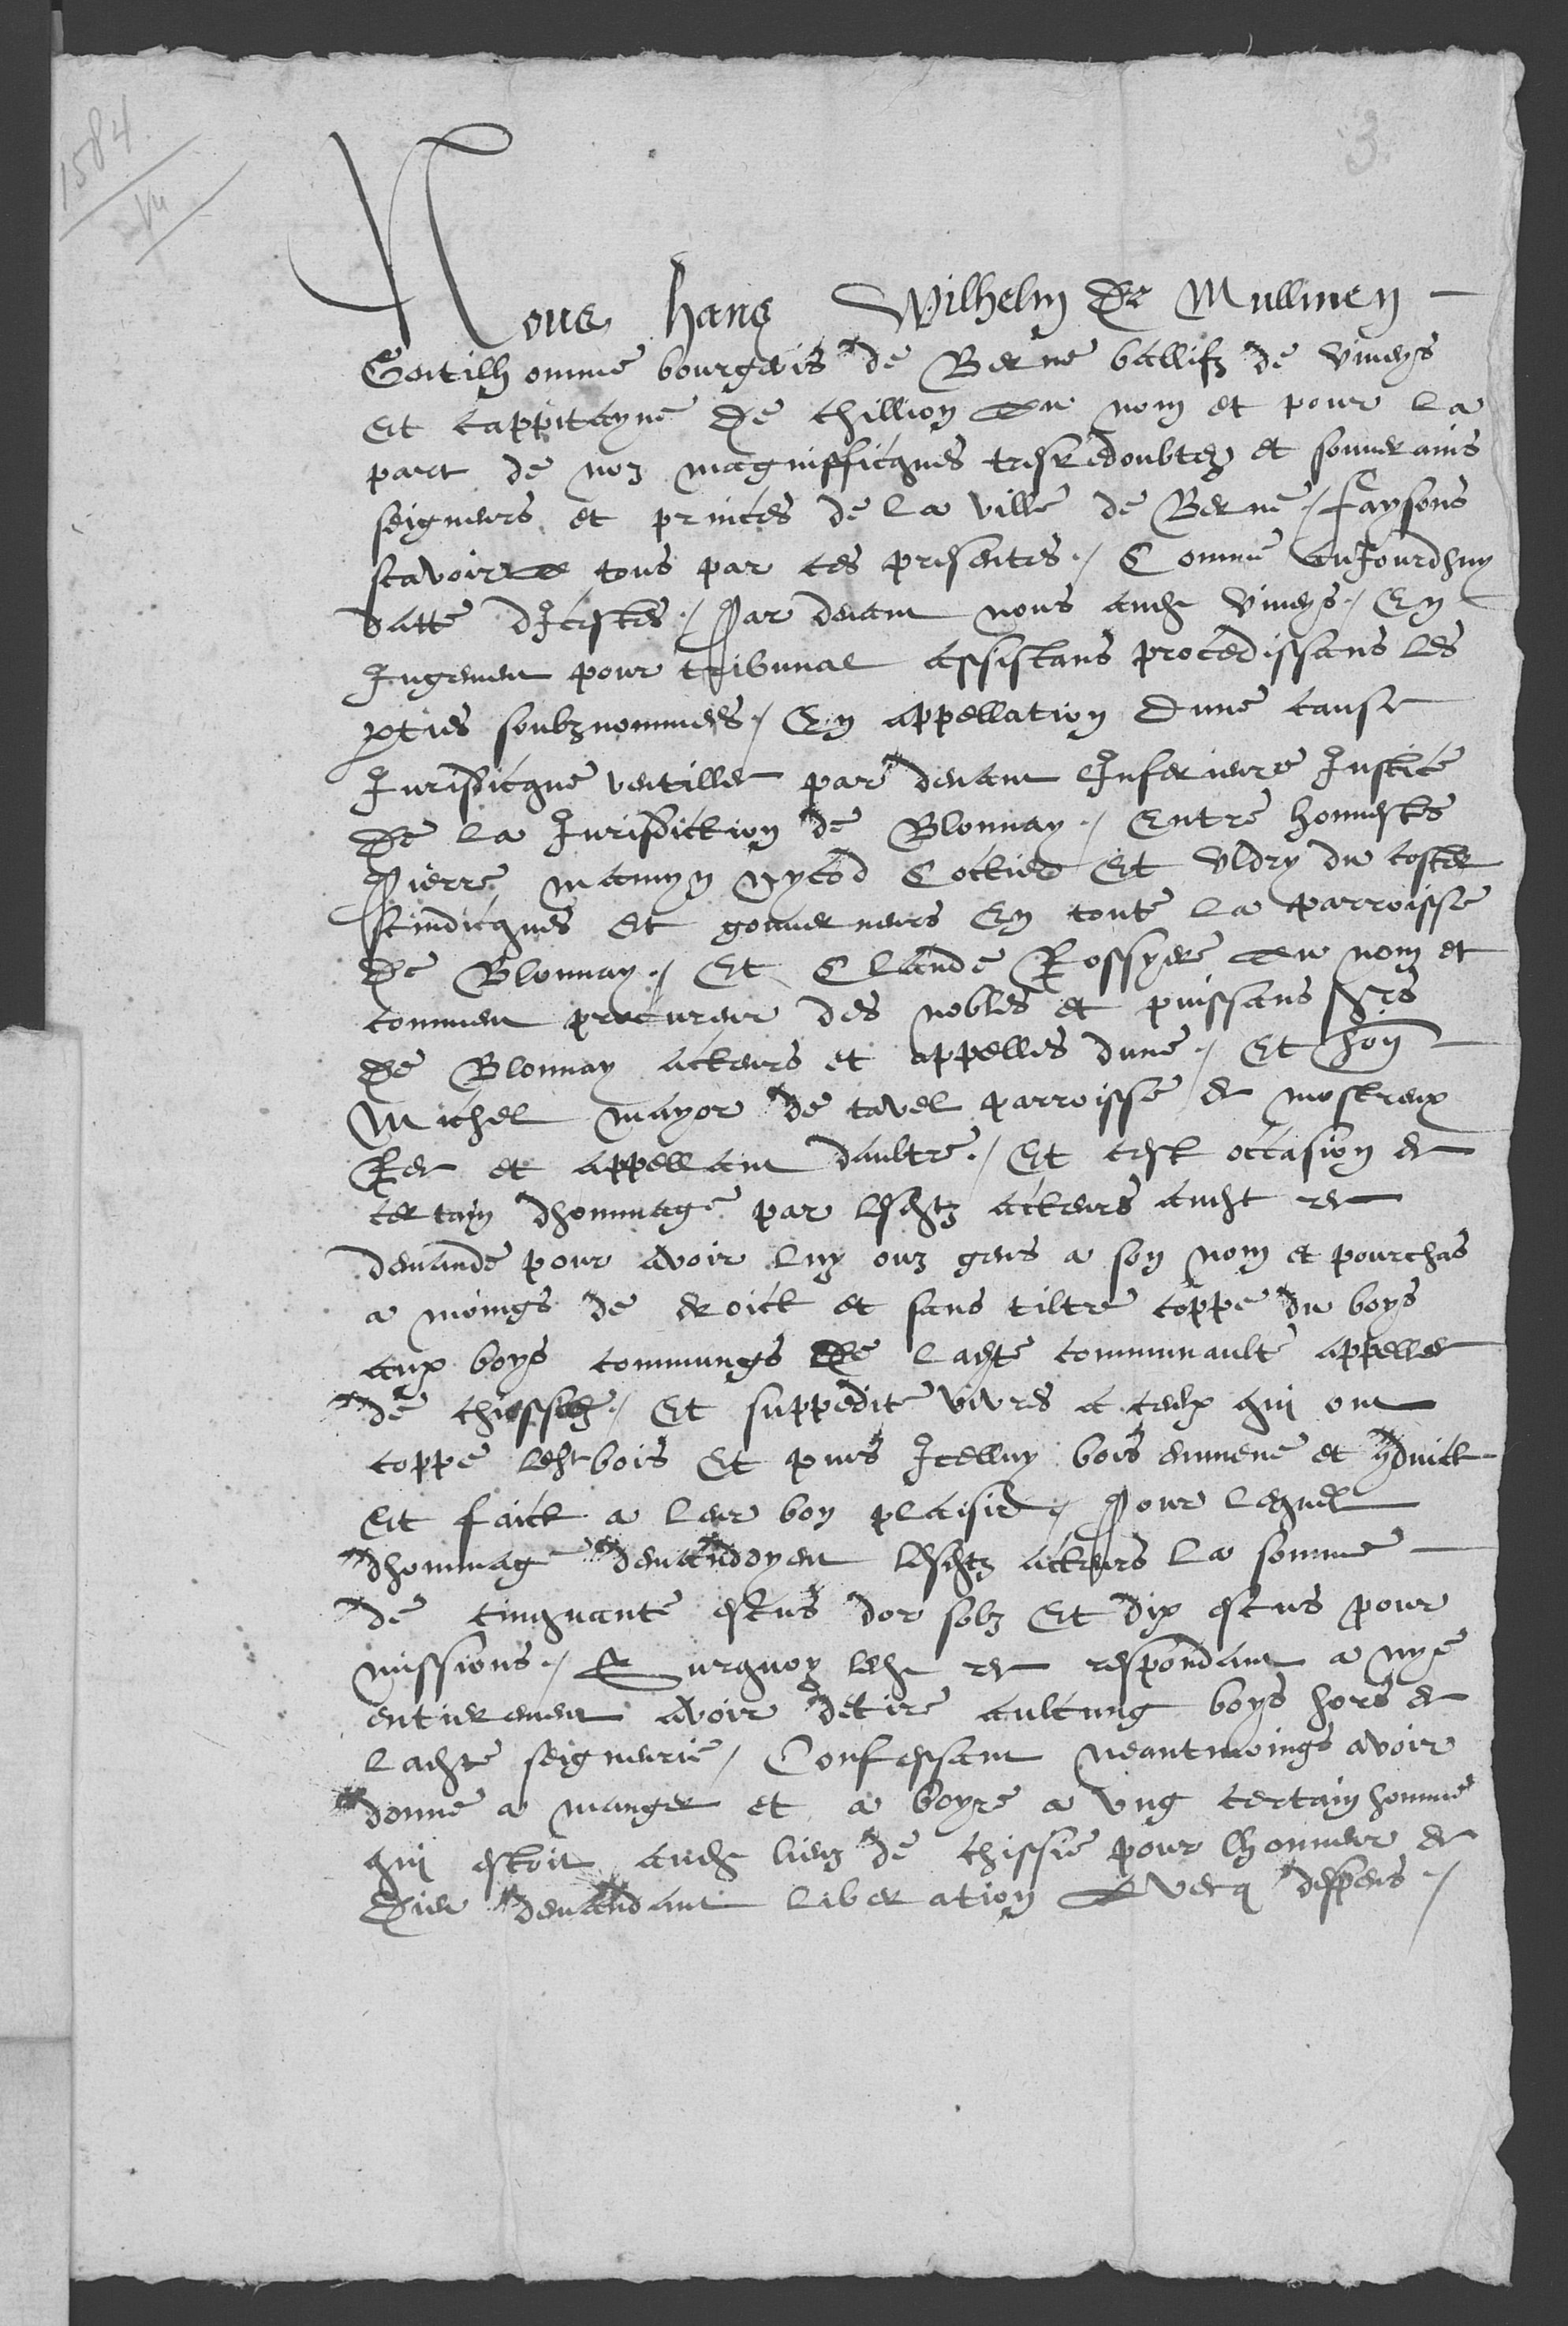 1584
3.
Nous hans Wilhelm De Mullinen
Gentilhomme bourgeois de Berne ballifz de viveys
Et cappitayne De chillion Au nom et pour la
part de noz magnifficques tresredoubtez et souverains
seigneurs et princes de la ville de Berne / faysons
scavoir a tous par ces presentes / Comme aujourdhuy
datte dIcestes / Par devant nous audt viveys / En
Jugement pour tribunal assistans procedissans les
pties soubznommees / En appellation dune cause
Juridicque ventillee par devant Inferieure Justice
De la Jurisdiction de Blonnay / Entre honnestes
Pierre mamyn nycod Cochard Et Uldry du coster
scindicques et gouverneurs En toute la parroisse
De Blonnay / Et Claude Rossyer Au nom et
comment procureur des nobles et puissans Srs
De Blonnay acteurs et appelles dune / Et hon
Michel mayor de tavel parroisse de mostreux
Ree et appellant daultre / Et cest occasion de
certain dhommage par lesdtz acteurs audt ree
demande pour avoir luy ouz gens a son nom et pourchas
a moings de droict et sans tiltre coppe du boys
aux boys commungs De ladte communaulte appelles
de / Et suppedite vivres a ceulx qui ont
coppe ledt bois Et puis Icelluy bois emmene et 9duict
Et faict a leur bon plaisir / Pour lequel
dhommage demandoyent lesdtz acteurs la somme
de cinquante escus dor solz Et dix escus pour
missions / Surquoy ledt ree respondant a nye
entierement avoir detire aulcung boys hors de
ladte seigneurie / Confessant neantmoings avoir
donne a manger et a boyre a ung certain homme
qui estoit audt lieu de chissie pour lhonneur de
Dieu demandant liberation Avecq despens /